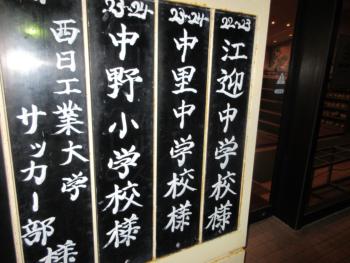 22~23
江迎中学校様
23~24~
中里中学校様
23~24~
中野小学校様
西日工業大学
サッカー部様